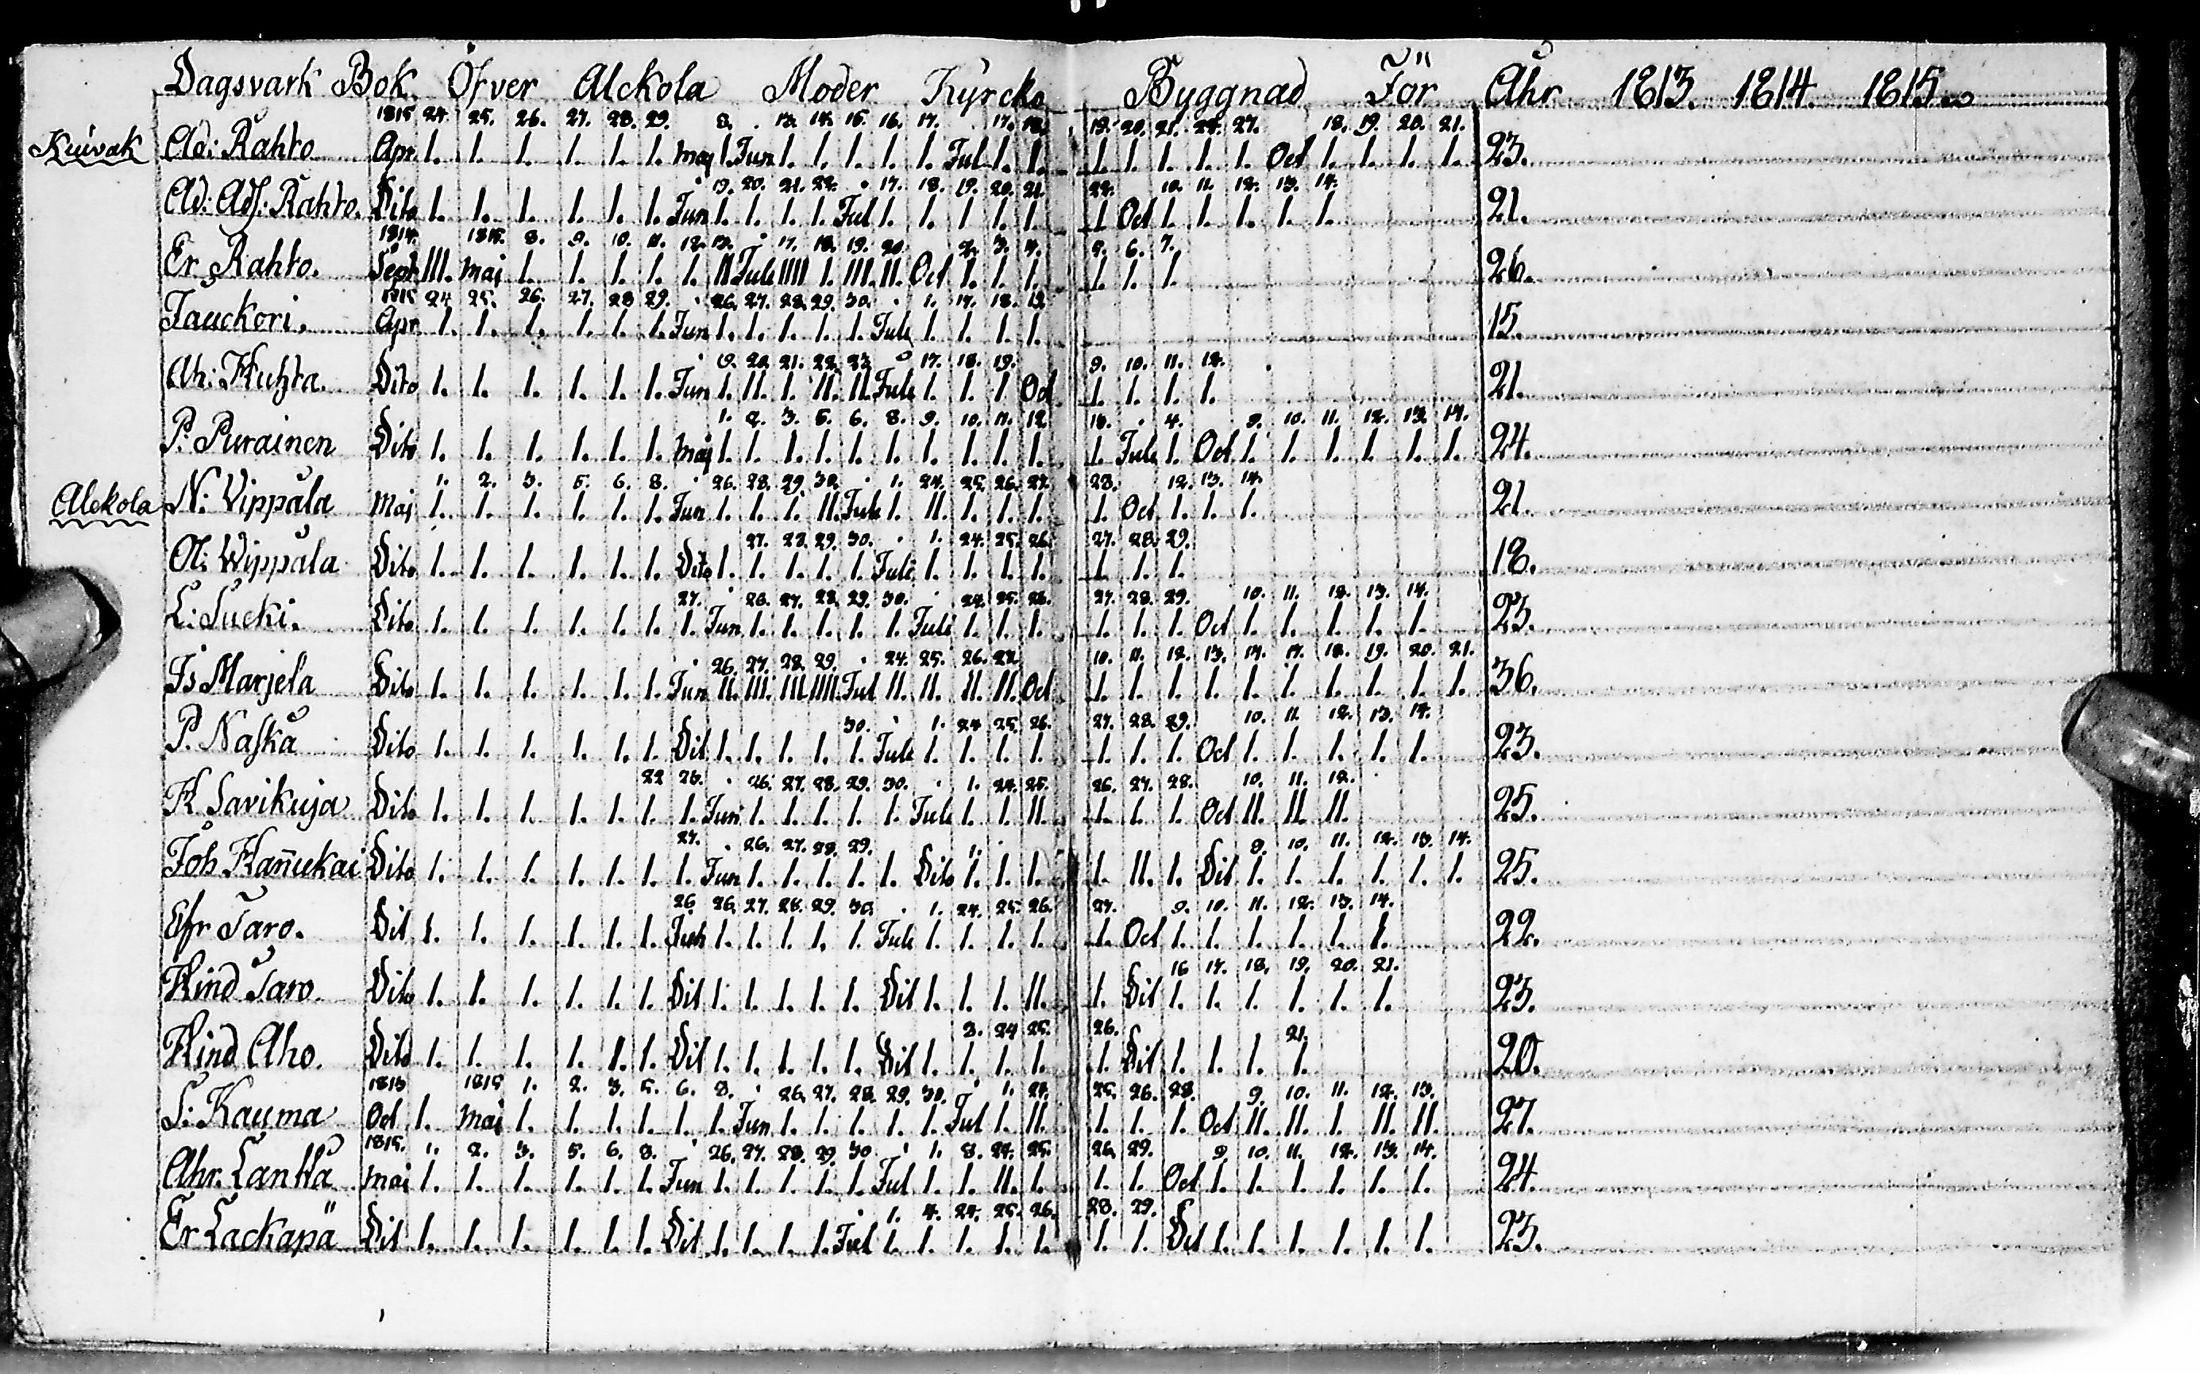 Dagsvark Bok Öfver Alckola Moder Kyrcko Byggnad För Åhr 1813. 1814. 1815.
1815 24. 25. 26. 27. 28. 29. 8. 13. 14. 15. 16. 17. 17. 18. 19. 20. 21. 24. 27. 18. 19. 20. 21.
Kuivak Ad: Rahto Apr 1. 1. 1. 1. 1. 1. maj 1. Jun 1. 1. 1. 1. 1. Jul 1. 1. 1. 1. 1. 1. 1. Oct 1. 1. 1. 1. 23.
19. 20. 21. 22. 17. 18. 19. 20. 21. 22. 10. 11. 12. 13. 14.
Ad: Adf: Rahto. Dito 1. 1. 1. 1. 1. 1. Jun 1. 1. 1. 1. Jul 1. 1. 1. 1. 1. 1. Oct 1. 1. 1. 1. 1. 21.
1814. 1815. 8. 9. 10. 11. 12. 13. 17. 18. 19. 20. 2. 3. 4. 5. 6. 7.
Er Rahto. Sept III. maj 1. 1. 1. 1. 1. II Jule IIII 1. III. II. Oct 1. 1. 1. 1. 1. 1. 26.
1815 24. 25. 26. 27. 28 29. 26. 27. 28. 29. 30. 1. 17. 18. 19.
Tauckori. Apr 1. 1. 1. 1. 1. 1. Jun 1. 1. 1. 1. 1. Jule 1. 1. 1. 1. 15.
19. 20. 21. 22. 23. 17. 18. 19. 9. 10. 11. 12.
An: Huhta. Dito 1. 1. 1. 1. 1. 1. Jun 1. II. 1. II. II. Jule 1. 1. 1. Oct 1. 1. 1. 1. 21.
1. 2. 3. 5. 6. 8. 9. 10. 11. 12. 13. 4. 9. 10. 11. 12. 13. 14.
P: Purainen Dito 1. 1. 1. 1. 1. 1. maj 1. 1. 1. 1. 1. 1. 1. 1. 1. 1. 1. Jule 1. Oct 1. 1. 1. 1. 1. 1. 24.
1. 2. 3. 5. 6. 8. 26. 28. 29. 30. 1. 24. 25. 26. 27. 28. 12. 13. 14.
Alckola N: Vippala Maj 1. 1. 1. 1. 1. 1. Jun 1. 1. 1. II. Jule 1. II. 1. 1. 1. 1. Oct 1. 1. 1. 21.
27. 28. 29. 30. 1. 24. 25. 26. 27. 28. 29.
Ol: Wippala Dito 1. 1. 1. 1. 1. 1. Dito 1. 1. 1. 1. 1. Jule 1. 1. 1. 1. 1. 1. 1. 18.
27. 26. 27. 28. 29. 30. 24. 25. 26. 27. 28. 29. 10. 11. 12. 13. 14.
L: Sucki. Dito 1. 1. 1. 1. 1. 1. 1. Jun 1. 1. 1. 1. 1. Jule 1. 1. 1. 1. 1. 1. Oct 1. 1. 1. 1. 1. 23.
26. 27. 28. 29. 24. 25. 26. 27. 10. 11. 12. 13. 14. 17. 18. 19. 20. 21.
Is Marjela Dito 1. 1. 1. 1. 1. 1. Jun II. III. III. IIII. Jul II. II. II. II. Oct 1. 1. 1. 1. 1. 1. 1. 1. 1. 1. 36.
30. 1. 24. 25. 26. 27. 28. 29. 10. 11. 12. 13. 14.
P. Naska Dito 1. 1. 1. 1. 1. 1. Dit 1. 1. 1. 1. 1. Jule 1. 1. 1. 1. 1. 1. 1. Oct 1. 1. 1. 1. 1. 23.
22 23. 26. 27. 28. 29. 30. 1. 24. 25. 26. 27. 28. 10. 11. 12.
H Savikuja Dito 1. 1. 1. 1. 1. 1. 1. Jun 1. 1. 1. 1. 1. Jule 1. 1. II. 1. 1. 1. Oct II. II. II. 25.
27. 26. 27. 28. 29. 1. 9. 10. 11. 12. 13. 14.
Joh Hañukai Dito 1. 1. 1. 1. 1. 1. 1. Jun 1. 1. 1. 1. 1. Dito 1. 1. 1. 1. II. 1. Dit 1. 1. 1. 1. 1. 1. 25.
26. 26. 27. 28. 29. 30. 1. 24. 25. 26. 27. 9. 10. 11. 12. 13. 14.
Efr Taro. Dit 1. 1. 1. 1. 1. 1. Jun 1. 1. 1. 1. 1. Jule 1. 1. 1. 1. 1. Oct 1. 1. 1. 1. 1. 1. 22.
16 17. 18. 19. 20. 21.
Hind Taro. Dito 1. 1. 1. 1. 1. 1. Dit 1. 1. 1. 1. 1. Dit 1. 1. 1. II. 1. Dit 1. 1. 1. 1. 1. 1. 23.
3. 24 25. 26. 21.
Hind Aho. Dito 1. 1. 1. 1. 1. 1. Dit 1. 1. 1. 1. 1. Dit 1. 1. 1. 1. 1. Dit 1. 1. 1. 1. 20.
1813 1815 1. 2. 3. 5. 6. 8. 26. 27. 28. 29. 30. 1. 24. 25. 26. 28. 9. 10. 11. 12. 13.
S: Kauma Oct 1. maj 1. 1. 1. 1. 1. 1. Jun 1. 1. 1. 1. 1. Jul 1. II. 1. 1. 1. Oct II. II. 1. II. II. 27.
1815. 1. 2. 3. 5. 6. 8. 26. 27. 28. 29. 30 1. 8. 24. 25. 26. 29. 9. 10. 11. 12. 13. 14.
Ahr. Lantta maj 1. 1. 1. 1. 1. 1. Jun 1. 1. 1. 1. 1. Jul 1. 1. II. 1. 1. 1. Oct 1. 1. 1. 1. 1. 1. 24.
1. 4. 24. 25. 26. 28. 29.
Er Lackapä Dit 1. 1. 1. 1. 1. 1. Dit 1. 1. 1. 1. Jul 1. 1. 1. 1. 1. 1. 1. Dit 1. 1. 1. 1. 1. 1. 23.